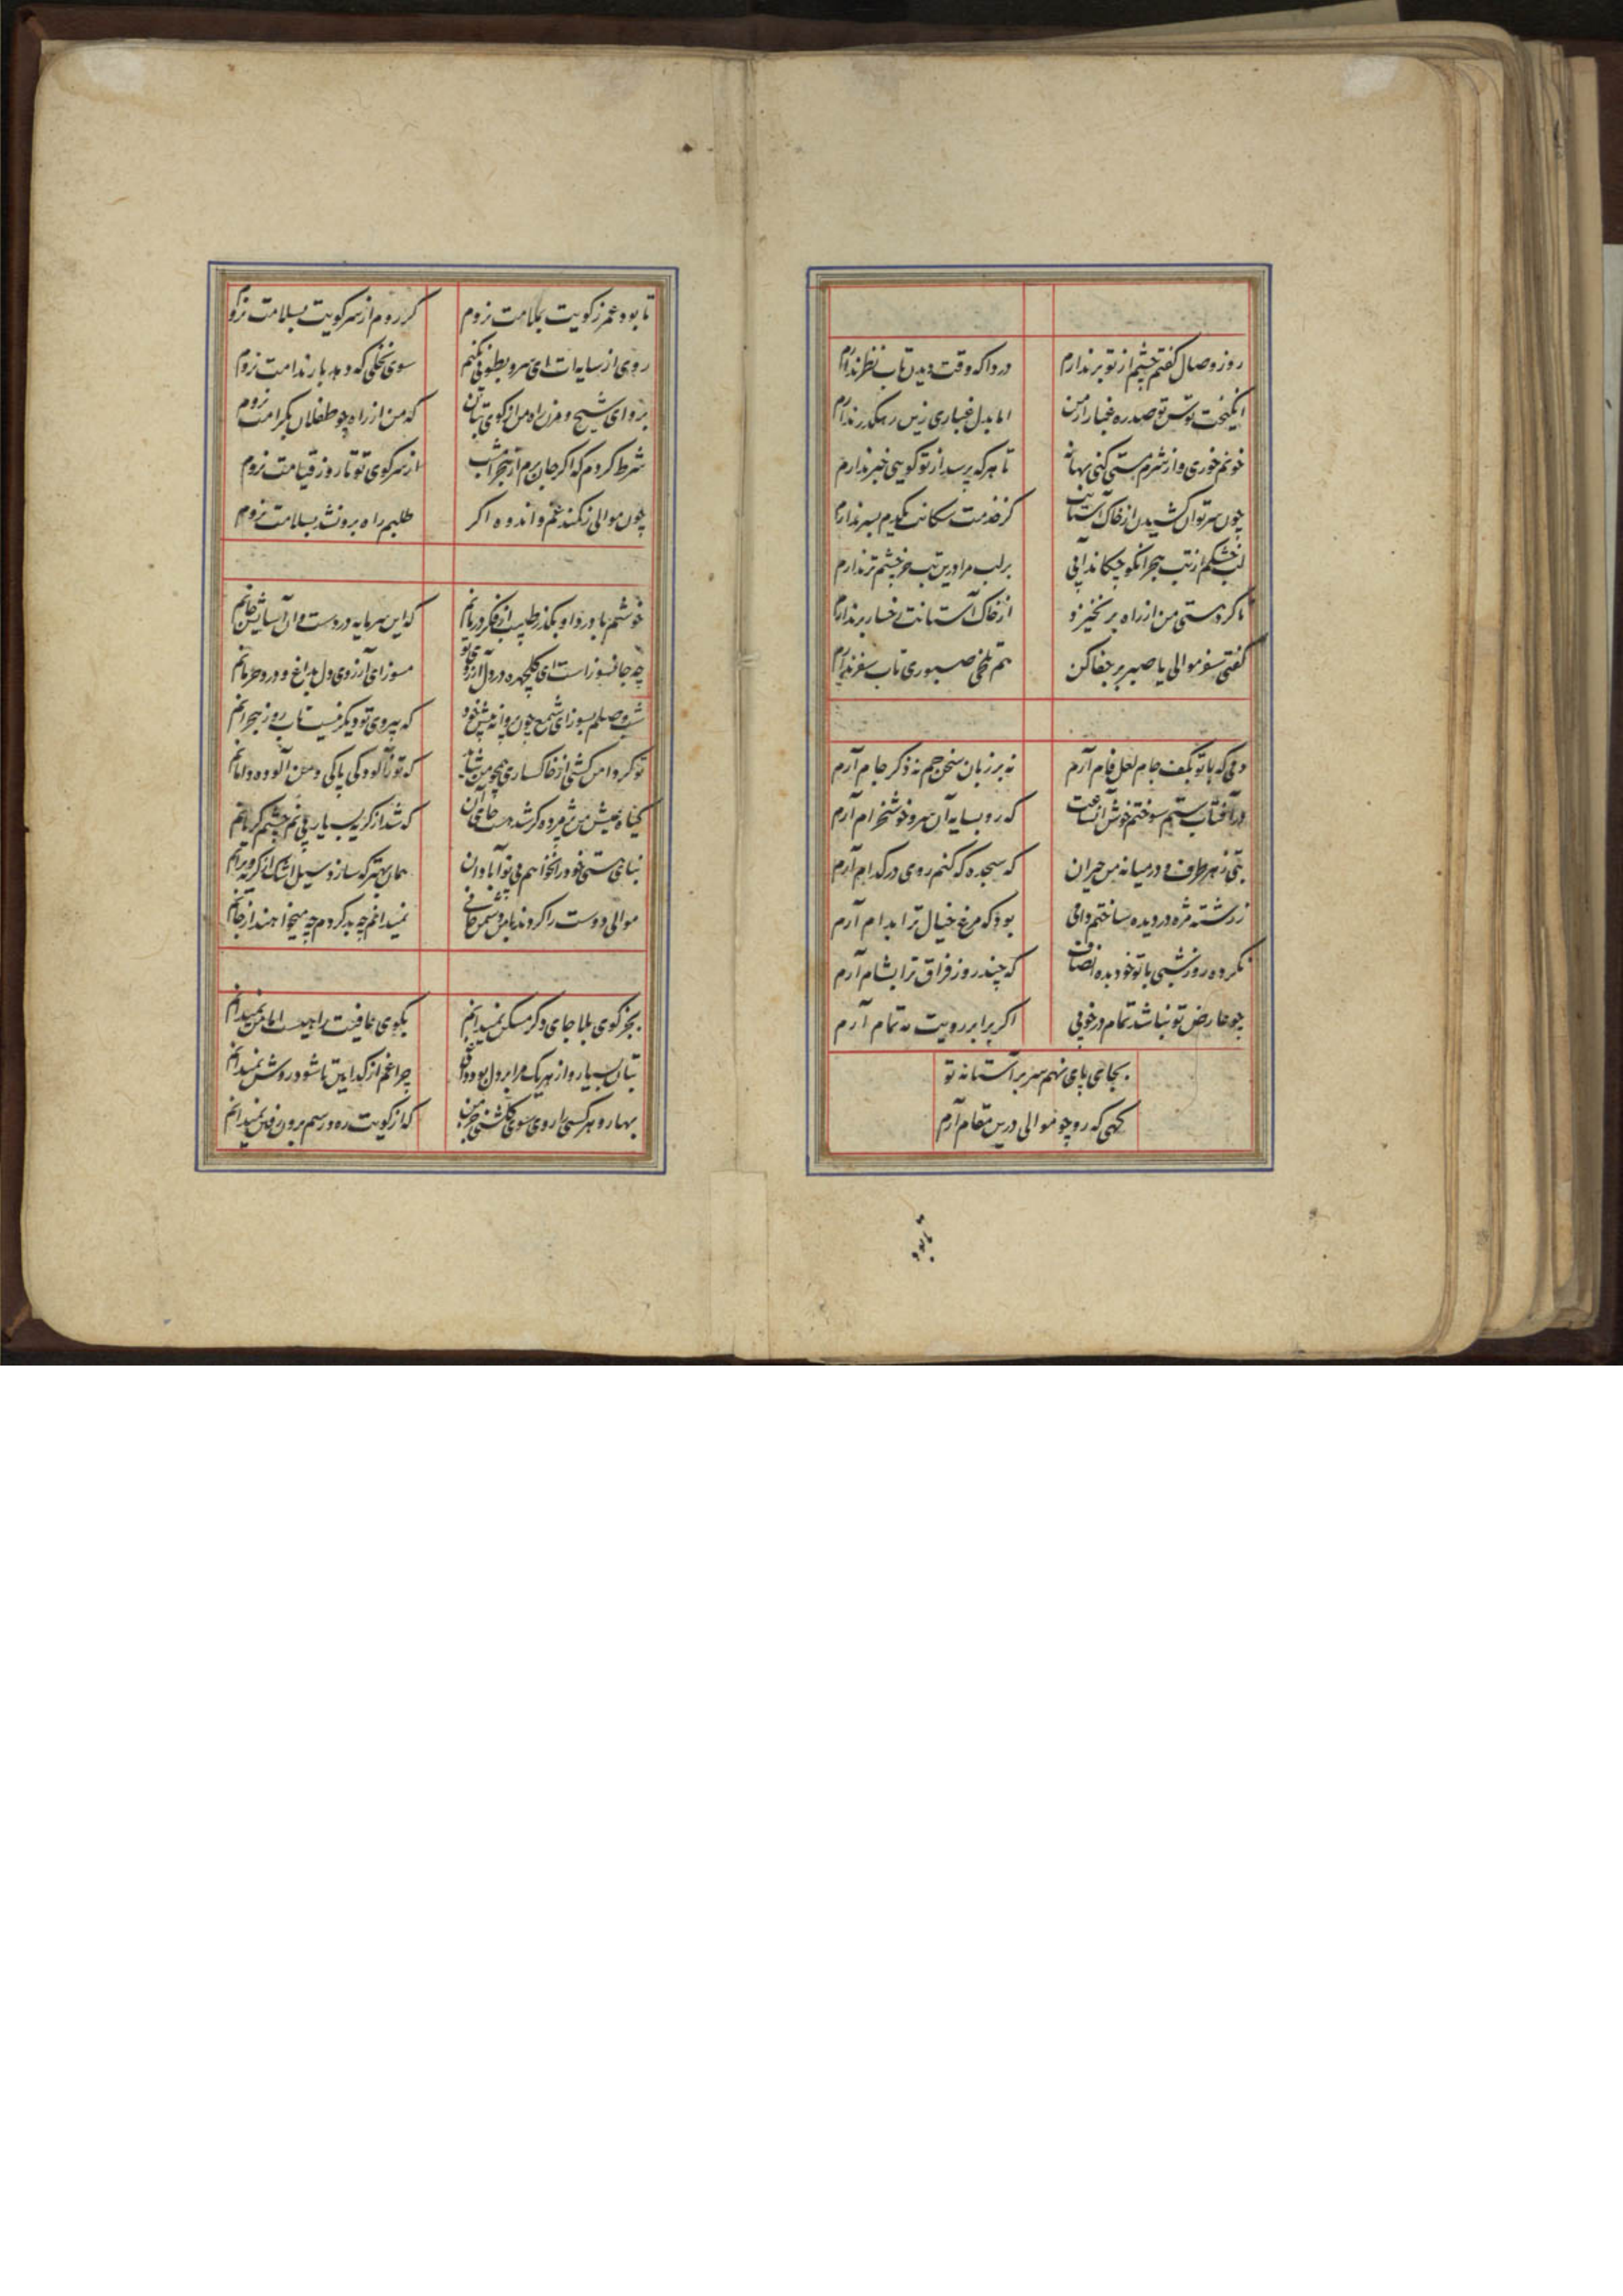 روز وصال گفتم چشم از تو برندارم دردا که وقت دیدن تاب نظر ندارم
انگیخت توسن تو صد ره غبار از من اما بدل غباری زین رهگذر ندارم
خونم خوری و از شرم مستی کنی بهانه تا هر که پرسد از تو گویی خبر ندارم
چون سر توان کشیدن از خاک آستانت کز خدمت سگانت یکدم بسر ندارم
لب خشکم از تب هجر انکو چکاند آبی بر لب مرا درین تب جز چشم تر ندارم
تا گرد هستی من از راه برنخیزد از خاک آستانت رخسار برندارم
گفتی سفر موالی یا صبر بر جفا کن هم تلخی صبوری تاب سفر ندارم
دمی که با تو بکف جام لعل فام آرم نه بر زبان سخن جم نه ذکر جام آرم
در آفتاب ستم سوختم خوش آنساعت که رو بسایه آن سرو خوشخرام آرم
بتی ز هر طرف و در میانه من حیران که سجده که کنم روی در کدام آرم
ز رشته مژه در دیده ساختم دامی بود که مرغ خیال ترا بدام آرم
نکرده روز شبی با تو خود بده انصاف که چند روز فراق ترا بشام آرم
چو عارض تو نباشد تمام در خوبی اگر برابر رویت مه تمام آرم
بجای پای نهم سر بر آستانه تو
گهی که رو چو موالی درین مقام آرم
تا بود
تا بود عمر ز کویت بملامت نروم گر روم از سر کویت بسلامت نروم
روی از سایه ات ای سرو بطوبی نکنم سوی نخلی که دهد بار ندامت نروم
برو ای شیخ و مزن راه من از کوی بتان که من از راه چو طفلان بکرامت نروم
شرط کردم که اگر جان برم از هجر امشب از سر کوی تو تا روز قیامت نروم
چون موالی نکند غم و اندوه اگر طلبم راه برونشد بسلامت نروم
خوشم با درد او بگذر طبیب از فکر درمانم که این سرمایه دردست و آن آسایش جانم
چه جانسوز است ای گلچهره در دل آرزوی تو مسوز ای آرزوی دل بداغ و درد حرمانم
شب وصلم بسوز ای شمع چون پروانه پیش خود که بی روی تو دیگر نیست تاب روز هجرانم
تو گر دامن کشی از خاکساری همچو من شاید که تو ز آلودگی پاکی و من آلوده دامانم
گیاه عیش من پژمرده گر شد هست جای آن که شد از گریه بسیار بی نم چشم گریانم
بنای هستی خود را نخواهم بی تو آبادان همان بهتر که سازد سیل اشک از گریه ویرانم
موالی دوست را کردند با من دشمن جانی نمیدانم چه بد کردم چه میخواهند از جانم
بجز کوی بلا جای دگر مسکن نمیدانم بکوی عافیت راهیست اما من نمیدانم
بتان بسیار و از هر یک مرا بر دل بود داغی چراغم از کدامین تا شود روشن نمیدانم
بهار و هر کسی را روی سوی گلشنی جز من که از کویت ره و رسم برون رفتن نمیدانم